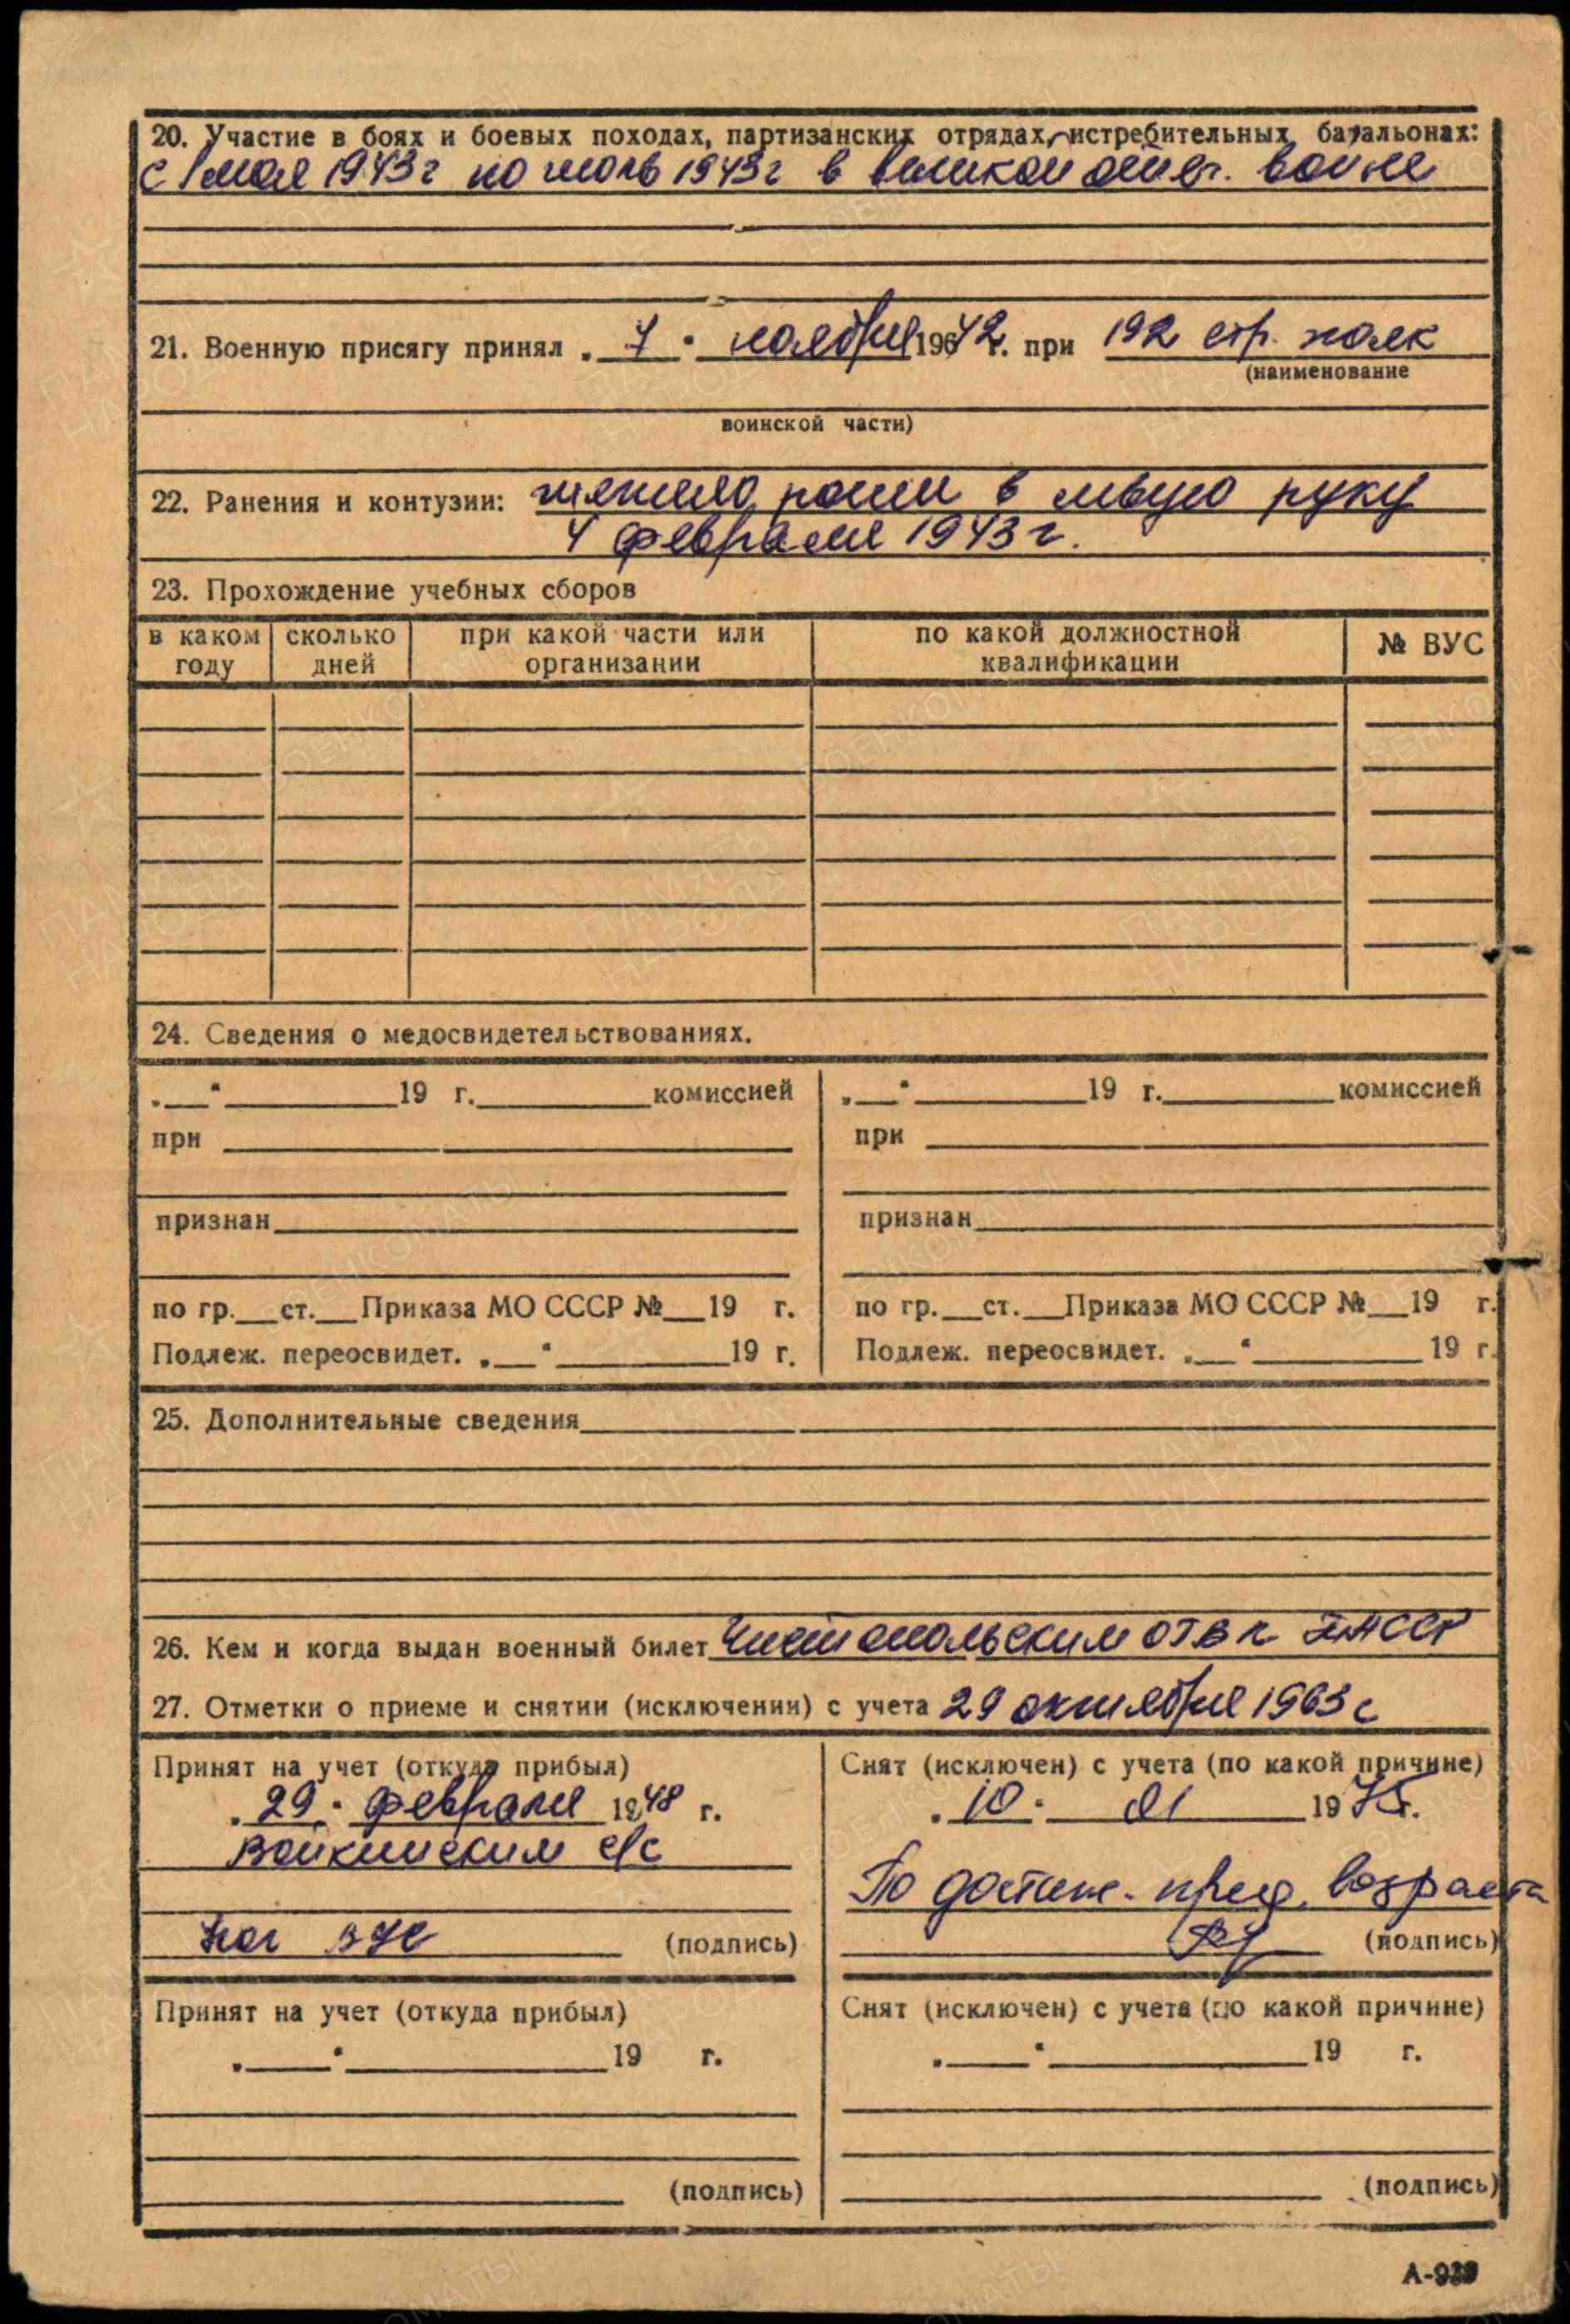 20. Участие в боях и боевых походах, партизанских отрядах, истребительных батальонах:
с 1 мая 1943 г по июль 1943 г в великой отеч. войне
21. Военную присягу принял „ 7 " ноября 1942 г. при 192 стр. полк
(наименование
воинской части)
22. Ранения и контузии: тяжело ранен в левую руку
4 февраля 1943 г.
23. Прохождение учебных сборов
в каком году | сколько дней | при какой части или организании | по какой должностной квалификации | № ВУС
24. Сведения о медосвидетельствованиях.
„___"________19 г.________комиссией | „___"________19 г.________комиссией
при | при
признан | признан
по гр.___ст.___Приказа МО СССР №___19 г. | по гр.___ст.___Приказа МО СССР №___19 г.
Подлеж. переосвидет. „___"________19 г. | Подлеж. переосвидет. „___"________19 г.
25. Дополнительные сведения
26. Кем и когда выдан военный билет Чистопольским ОГВК ТАССР
27. Отметки о приеме и снятии (исключении) с учета 29 октября 1963 г
Принят на учет (откуда прибыл) | Снят (исключен) с учета (по какой причине)
„ 29 " февраля 1948 г. | „ 10 " 01 1975 г.
Войкинским с/с
По достиж. пред. возраста
Нач ВУС (подпись) | (подпись)
Принят на учет (откуда прибыл) | Снят (исключен) с учета (по какой причине)
„____"________19 г. | „____"________19 г.
(подпись) | (подпись)